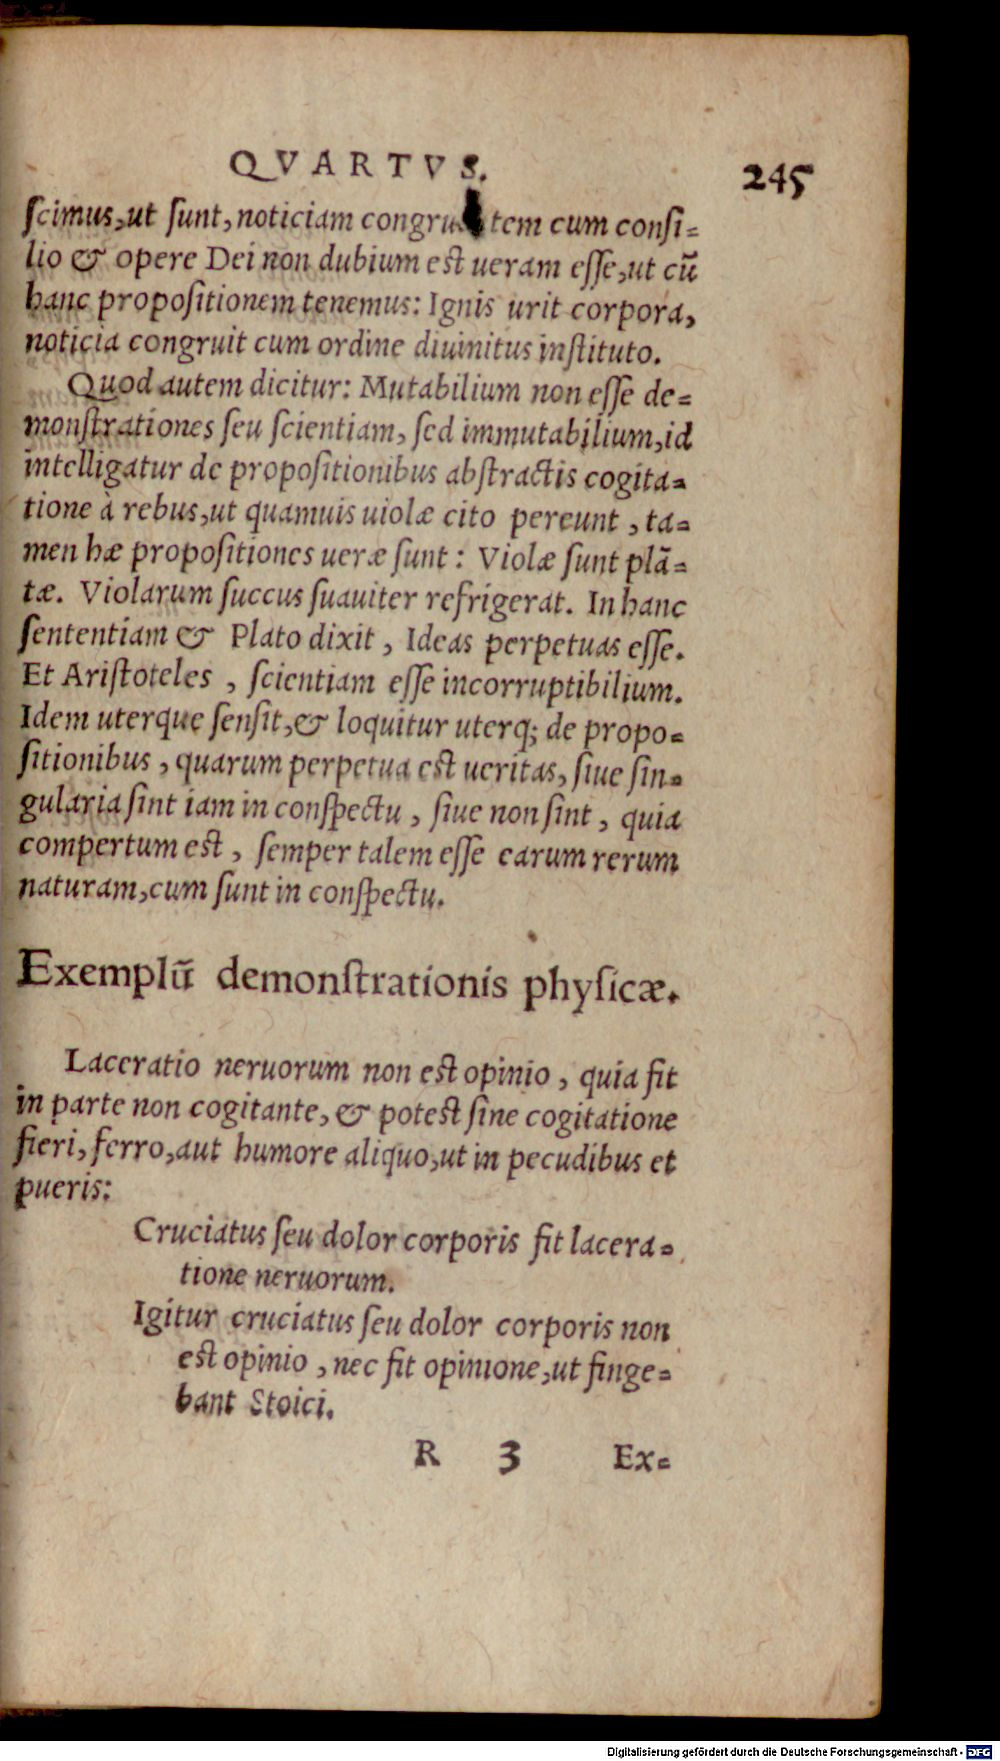 QVARTVS. 245
ſcimus, ut ſunt, noticiam cum conſi-
lio & opere Dei non dubium est ueram eſſe, ut cū
hanc propoſitionem tenemus: Ignis urit corpora,
noticia congruit cum ordine diuinitus inſtituto.
Quod autem dicitur: Mutabilium non eſſe de-
monſtrationes ſeu ſcientiam, ſed immutabilium, id
intelligatur de propoſitionibus abſtractis cogita-
tione à rebus, ut quamuis uiolæ cito pereunt, ta-
men hæ propoſitiones ueræ ſunt: Violæ ſunt plā-
tæ. Violarum ſuccus ſuauiter refrigerat. In hanc
ſententiam & Plato dixit, Ideas perpetuas eſſe.
Et Ariſtoteles, ſcientiam eſſe incorruptibilium.
Idem uterque ſenſit, & loquitur uterq; de propo-
ſitionibus, quarum perpetua est ueritas, ſiue ſin-
gularia ſint iam in conſpectu, ſiue non ſint, quia
compertum est, ſemper talem eſſe earum rerum
naturam, cum ſunt in conſpectu.
Exemplū demonſtrationis phyſicæ.
Laceratio neruorum non est opinio, quia fit
in parte non cogitante, & potest ſine cogitatione
fieri, ferro, aut humore aliquo, ut in pecudibus et
pueris:
Cruciatus ſeu dolor corporis fit lacera-
tione neruorum.
Igitur cruciatus ſeu dolor corporis non
est opinio, nec fit opinione, ut finge-
bant Stoici.
R 3 Ex-
Digitalisierung gefördert durch die Deutsche Forschungsgemeinschaft - DFG